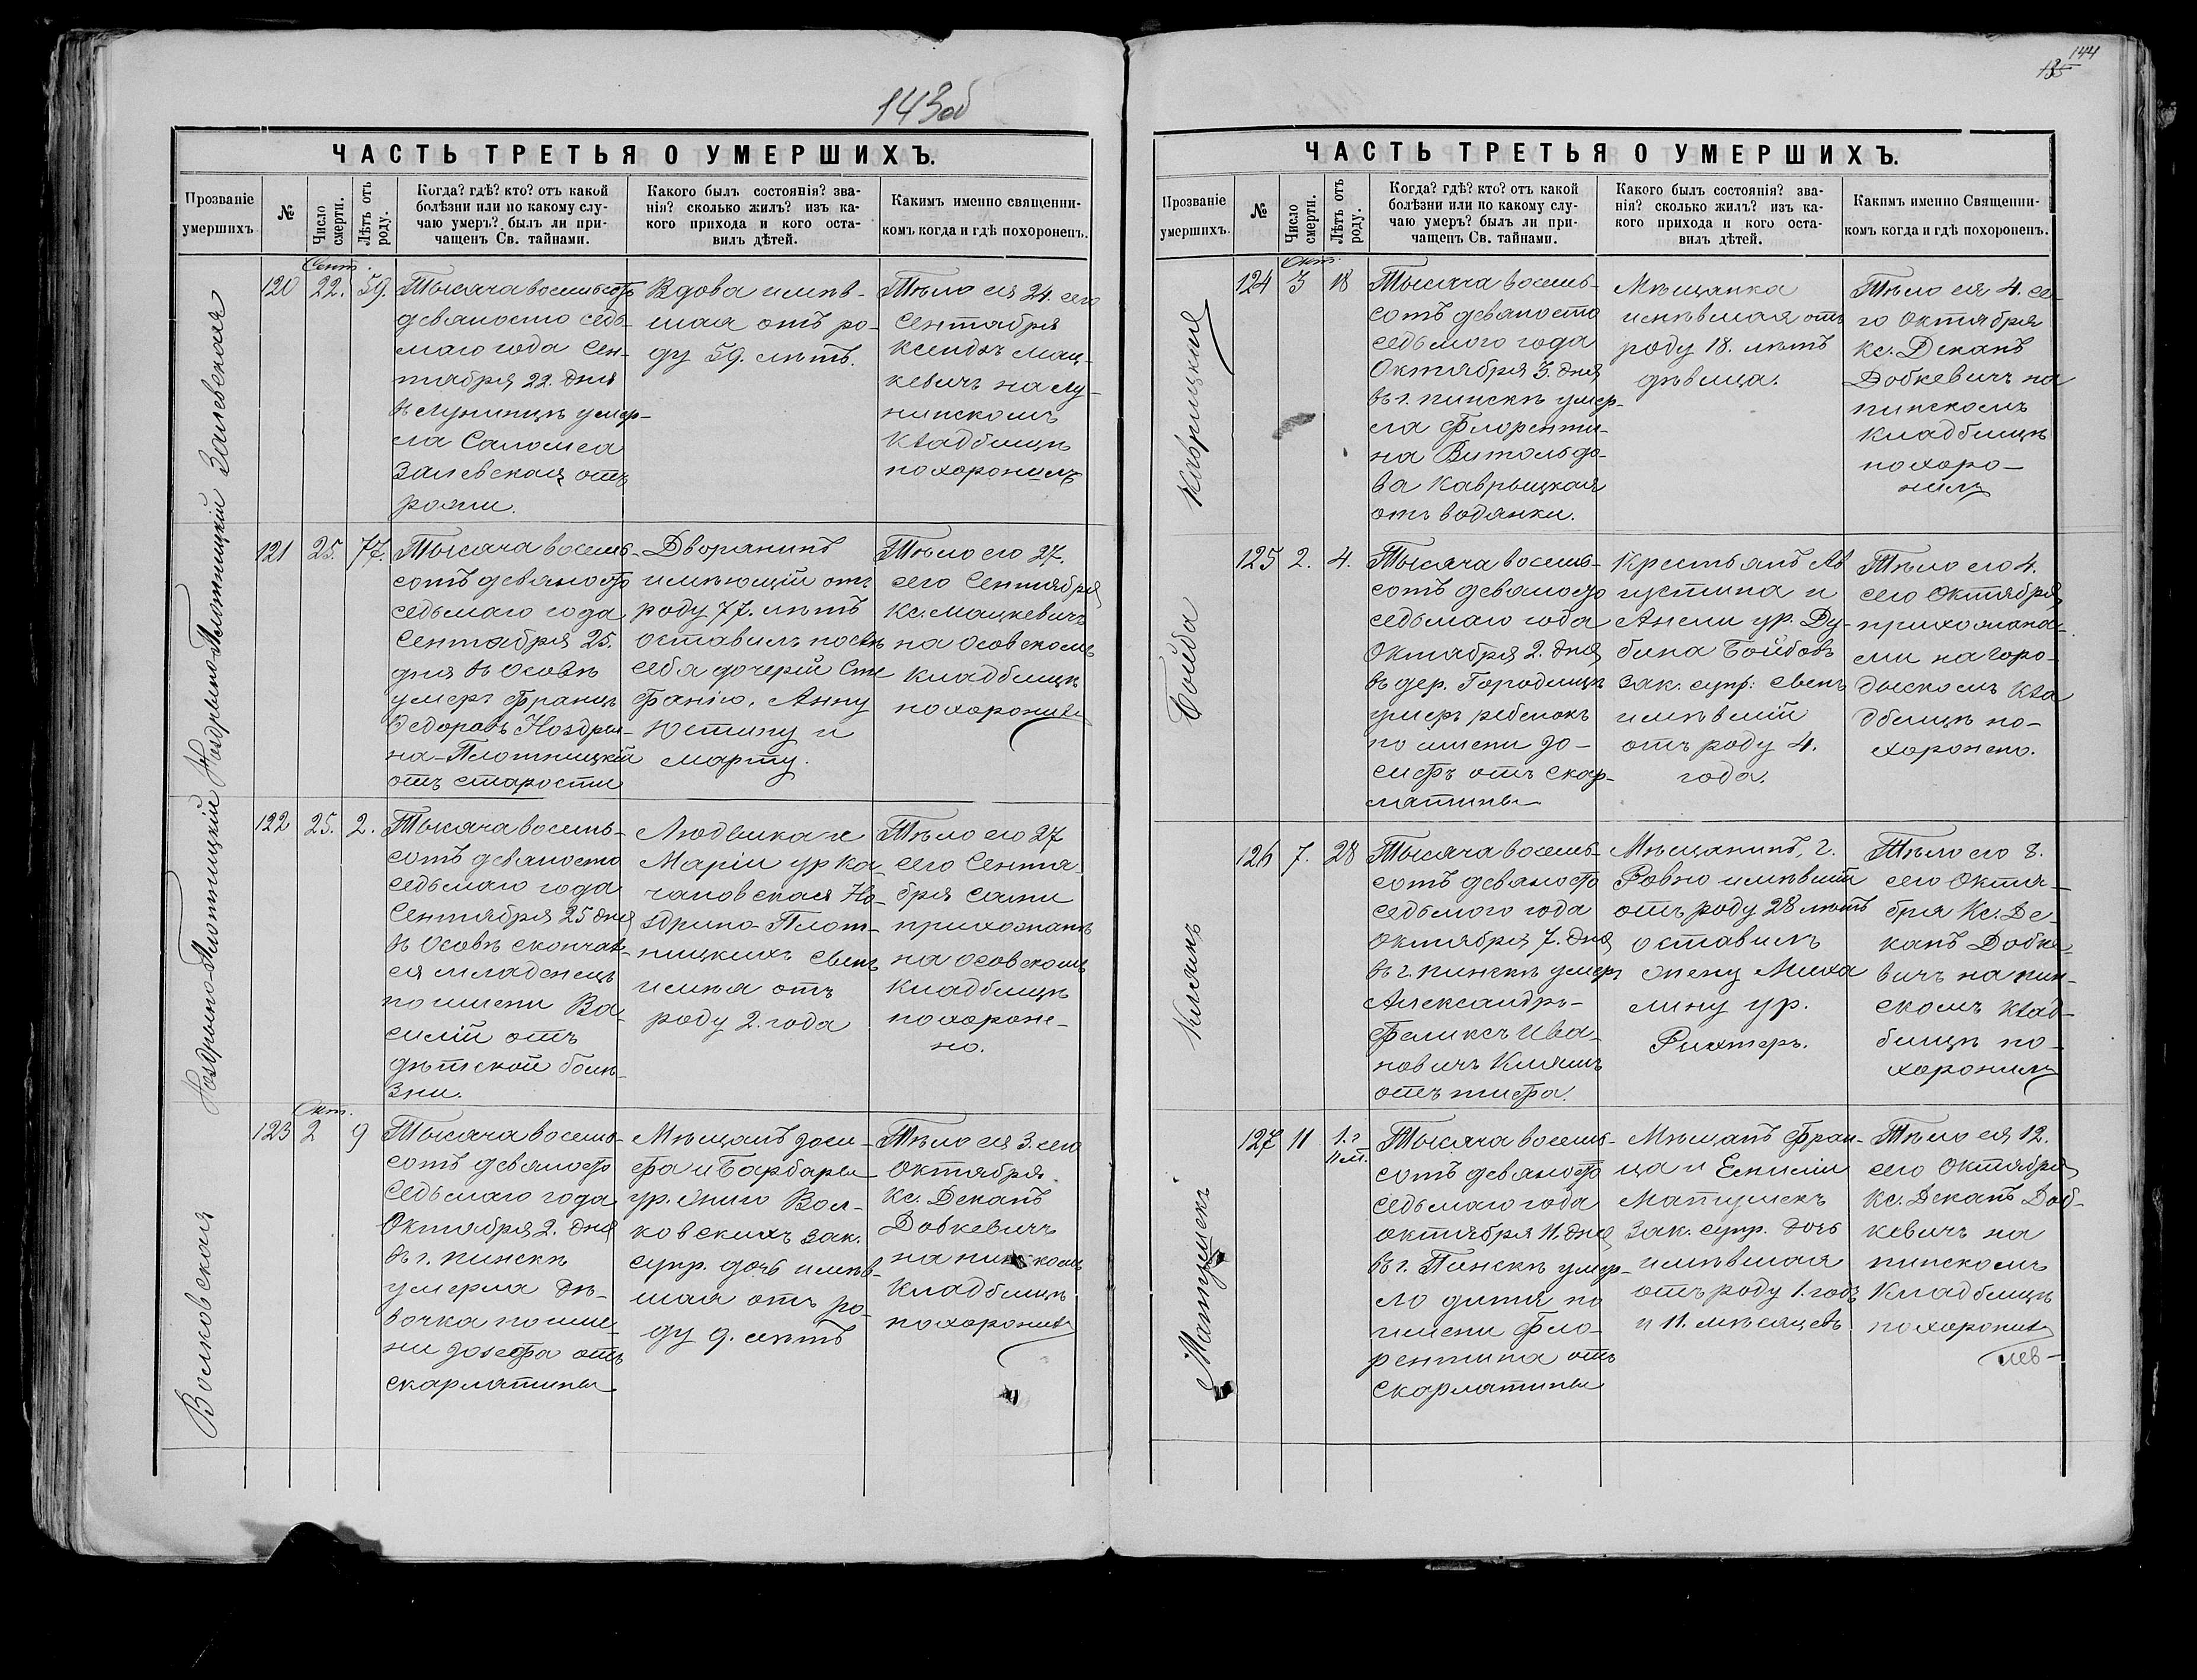 143об
ЧАСТЬ ТРЕТЬЯ О УМЕРШИХЪ.
Прозваніе
умершихъ
№
Число
смерти.
Лѣтъ отъ
роду.
Когда? гдѣ? кто? отъ какой
болѣзни или по какому слу-
чаю умеръ? былъ ли при-
чащенъ Св. тайнами.
Какого былъ состоянія? зва-
нія? сколько жилъ? изъ ка-
кого прихода и кого оста-
вилъ дѣтей.
Какимъ именно священни-
комъ когда и гдѣ похороненъ.
Залевская
Сент.
120
22.
59.
Тысяча восемьсотъ
девяносто седь-
маго года Сен-
тября 22. дня
въ Лунинцѣ умер-
ла Саломеа
Залевская отъ
рожи.
Вдова имѣв-
шая отъ ро-
ду 59. лѣтъ.
Тѣло ея 24. сего
Сентября
Ксендзъ Мац-
кевичъ на Лу-
нинскомъ
Кладбищѣ
похоронилъ
Ноздрыно Плотницкій
121
25.
77.
Тысяча восемь-
сотъ девяносто
седьмаго года
Сентября 25.
дня въ Осовѣ
умеръ Францъ
Федоравъ Ноздры-
на-Плотницкій
отъ старости
Дворянинъ
имѣющій отъ
роду 77. лѣтъ
оставилъ послѣ
себя дочерій Сте
фанію, Анну
Юстину и
Марту.
Тѣло его 27.
сего Сентября
Кс. Мацкевичъ
на Осовскомъ
Кладбищѣ
похоронилъ
Ноздрыно Плотницкій
122
25.
2.
Тысяча восемь-
сотъ девяносто
седьмаго года
Сентября 25 дня
въ Осовѣ скончал-
ся младенецъ
по имени Ва-
силій отъ
дѣтской болѣ-
зни.
Людвика и
Маріи ур Ка-
чановская Но-
здрино-Плот-
ницкихъ сынъ
имѣя отъ
роду 2. года
Тѣло его 27
сего Сентя-
бря сами
прихожанѣ
на Осовскомъ
Кладбищѣ
похороне-
но.
Волковская
Окт.
123
2
9
Тысяча восемь-
сотъ девяносто
седьмаго года
Октября 2. дня
въ г. Пинскѣ
умерла дѣ-
вочка по име-
ни Юзефа отъ
скарлатины
Мѣщанъ Юзе-
фа и Барбары
ур. Волковскихъ зак.
супр. дочь имѣв-
шая отъ ро-
ду 9. лѣтъ
Тѣло ея 3. сего
Октября
Кс. Деканъ
Довкевичъ
на пинскомъ
Кладбищѣ
похоронилъ
144
135
ЧАСТЬ ТРЕТЬЯ О УМЕРШИХЪ.
Прозваніе
умершихъ.
№
Число
смерти.
Лѣтъ отъ
роду.
Когда? гдѣ? кто? отъ какой
болѣзни или по какому слу-
чаю умеръ? былъ ли при-
чащенъ Св. тайнами.
Какого былъ состоянія? зва-
нія? сколько жилъ? изъ ка-
кого прихода и кого оста-
вилъ дѣтей.
Какимъ именно Священни-
комъ когда и гдѣ похороненъ.
Окт.
124
3
18
Тысяча восемь-
сотъ девяносто
седьмого года
Октября 3. дня
въ г. пинскѣ умер-
ла Флоренти-
на Витольдо-
ва Каврыцкая
отъ водянки.
Мѣщанка
имѣвшая отъ
роду 18. лѣтъ
дѣвица.
Тѣло ея 4. се-
го Октября
Кс. Деканъ
Добкевичъ на
пинскомъ
Кладбищѣ
похоро-
нилъ
Бойба
125
2.
4.
Тысяча восемь-
сотъ девяносто
седьмаго года
Октября 2. дня
въ дер. Городищѣ
умеръ ребенокъ
по имени Іо-
сифъ отъ скар-
латины
Крестьянъ Ав
густина и
Анели ур. Ду-
бина Бойбовъ
зак. супр. сынъ
имѣвшій
отъ роду 4.
года.
Тѣло его 4.
сего Октября
прихожана-
ми на Горо-
дыскомъ Кла
дбищѣ по-
хоронено.
Климъ
126
7.
28
Тысяча восемь-
сотъ девяносто
седьмого года
Октября 7. дня
въ г. пинскѣ умеръ
Александръ-
Феликсъ Ива-
новичъ Климъ
отъ тифа.
Мѣщанинъ, г.
Ровно имѣвшій
отъ роду 28 лѣтъ
оставилъ
жену Миха
лину ур.
Рихтеръ.
Тѣло его 8.
сего Октя-
бря Кс. Де-
канъ Добке-
вичъ на пин-
скомъ Клад-
бищѣ по-
хоронилъ
Матушекъ
127
11
1. г
11 м.
Тысяча восемь-
сотъ девяносто
седьмаго года
октября 11. дня
въ г. Пинскѣ умер-
ло дитя по
имени Фло-
рентина отъ
Скарлатины
Мѣщанъ Фран-
ца и
Матушекъ
зак. супр. дочь
имѣвшая
отъ роду 1. годъ
и 11. мѣсяцевъ
Тѣло ея 12.
сего Октября
Кс. Деканъ Доб-
кевичъ на
пинскомъ
Кладбищѣ
похоронилъ